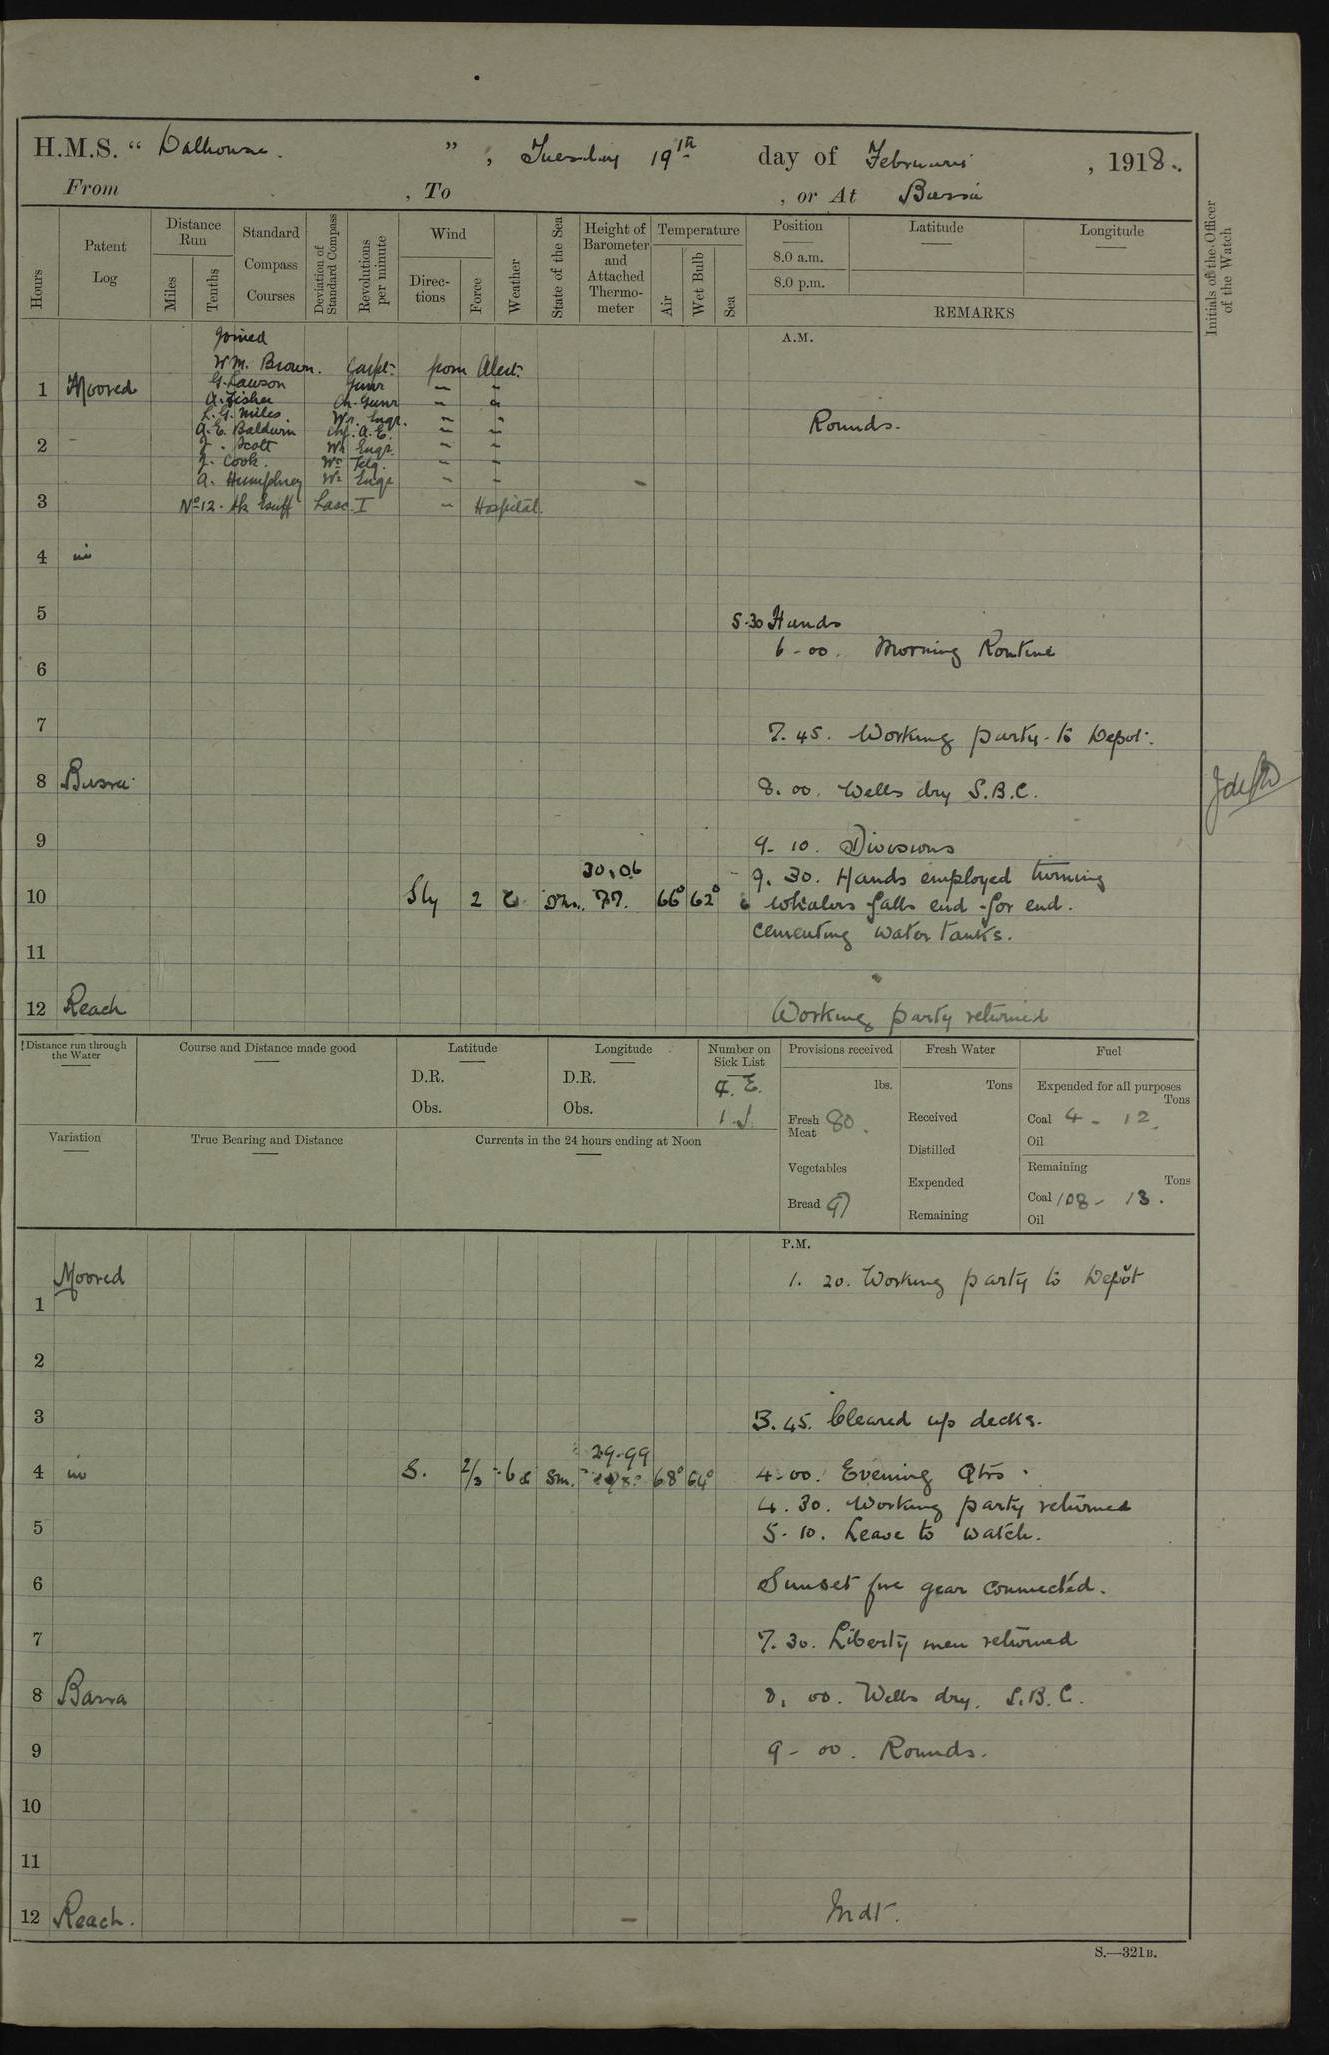 H.M.S. “ Dalhousie. ” , Tuesday 19th day of February , 1918.
From , To , or At Basra
Hours
Patent Log
Distance Run
Miles
Tenths
Standard Compass Courses
Deviation of Standard Compass
Revolutions per minute
Wind
Directions
Force
Weather
State of the Sea
Height of Barometer and Attached Thermometer
Temperature
Air
Wet Bulb
Sea
Position
8.0 a.m.
8.0 p.m.
Latitude
Longitude
REMARKS
Initials of the Officer of the Watch
A.M.
Joined
Wm. Brown. Carpt. from Alert.
G. Lawson Gunr — "
1 Moored
A. Fisher Ch. Gunr — "
L. G. Miles. Wt. Engr. — "
Rounds.
A. E. Baldwin A.E. — "
2
Scott Wt Engr. — "
J. Cook. Wt Telg. — "
A. Humphrey Wt Engr — "
3 No 12. Lasc. I — Hospital.
4 in
5 5.30 Hands
6-00. Morning Routine
6
7 7.45. Working party to Depot.
8 Busra 8.00. Wells dry S.B.C.
9 9-10. Divisions
30.06
9.30. Hands employed turning
10 Sly 2 77. 66° 62° whalers falls end for end.
cementing water tanks.
11
12 Reach Working party returned
Distance run through the Water
Course and Distance made good
Latitude
D.R.
Obs.
Longitude
D.R.
Obs.
Number on Sick List
4. E.
1.
Provisions received
lbs.
Fresh Meat 80.
Vegetables
Bread 97
Fresh Water
Tons
Received
Distilled
Expended
Remaining
Fuel
Expended for all purposes
Tons
Coal 4 - 12.
Oil
Remaining
Tons
Coal 108 - 13.
Oil
Variation
True Bearing and Distance
Currents in the 24 hours ending at Noon
P.M.
Moored 1.20. Working party to Depôt
1
2
3 3.45. Cleared up decks.
29.99
4 in S. 2/3 Sm. 68° 64° 4-00. Evening Qtrs.
4.30. Working party returned
5 5-10. Leave to watch.
6 Sunset fire gear connected.
7 7.30. Liberty men returned
8 Basra 8.00. Wells dry. S.B.C.
9 9-00. Rounds.
10
11
12 Reach. Mdt.
S.—321B.